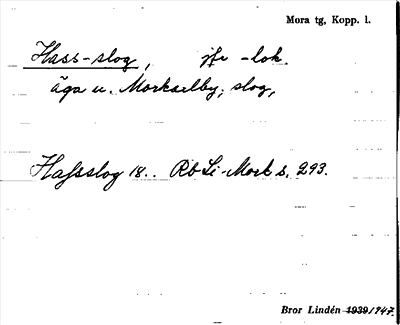 Mora tg, Kopp. l.
Hass-slog, jfr -lok.
äga u. Morkarlby; slog,
Hafsslog 18.. Rb Li-Mork s. 293.
Bror Lindén 1939/1947.